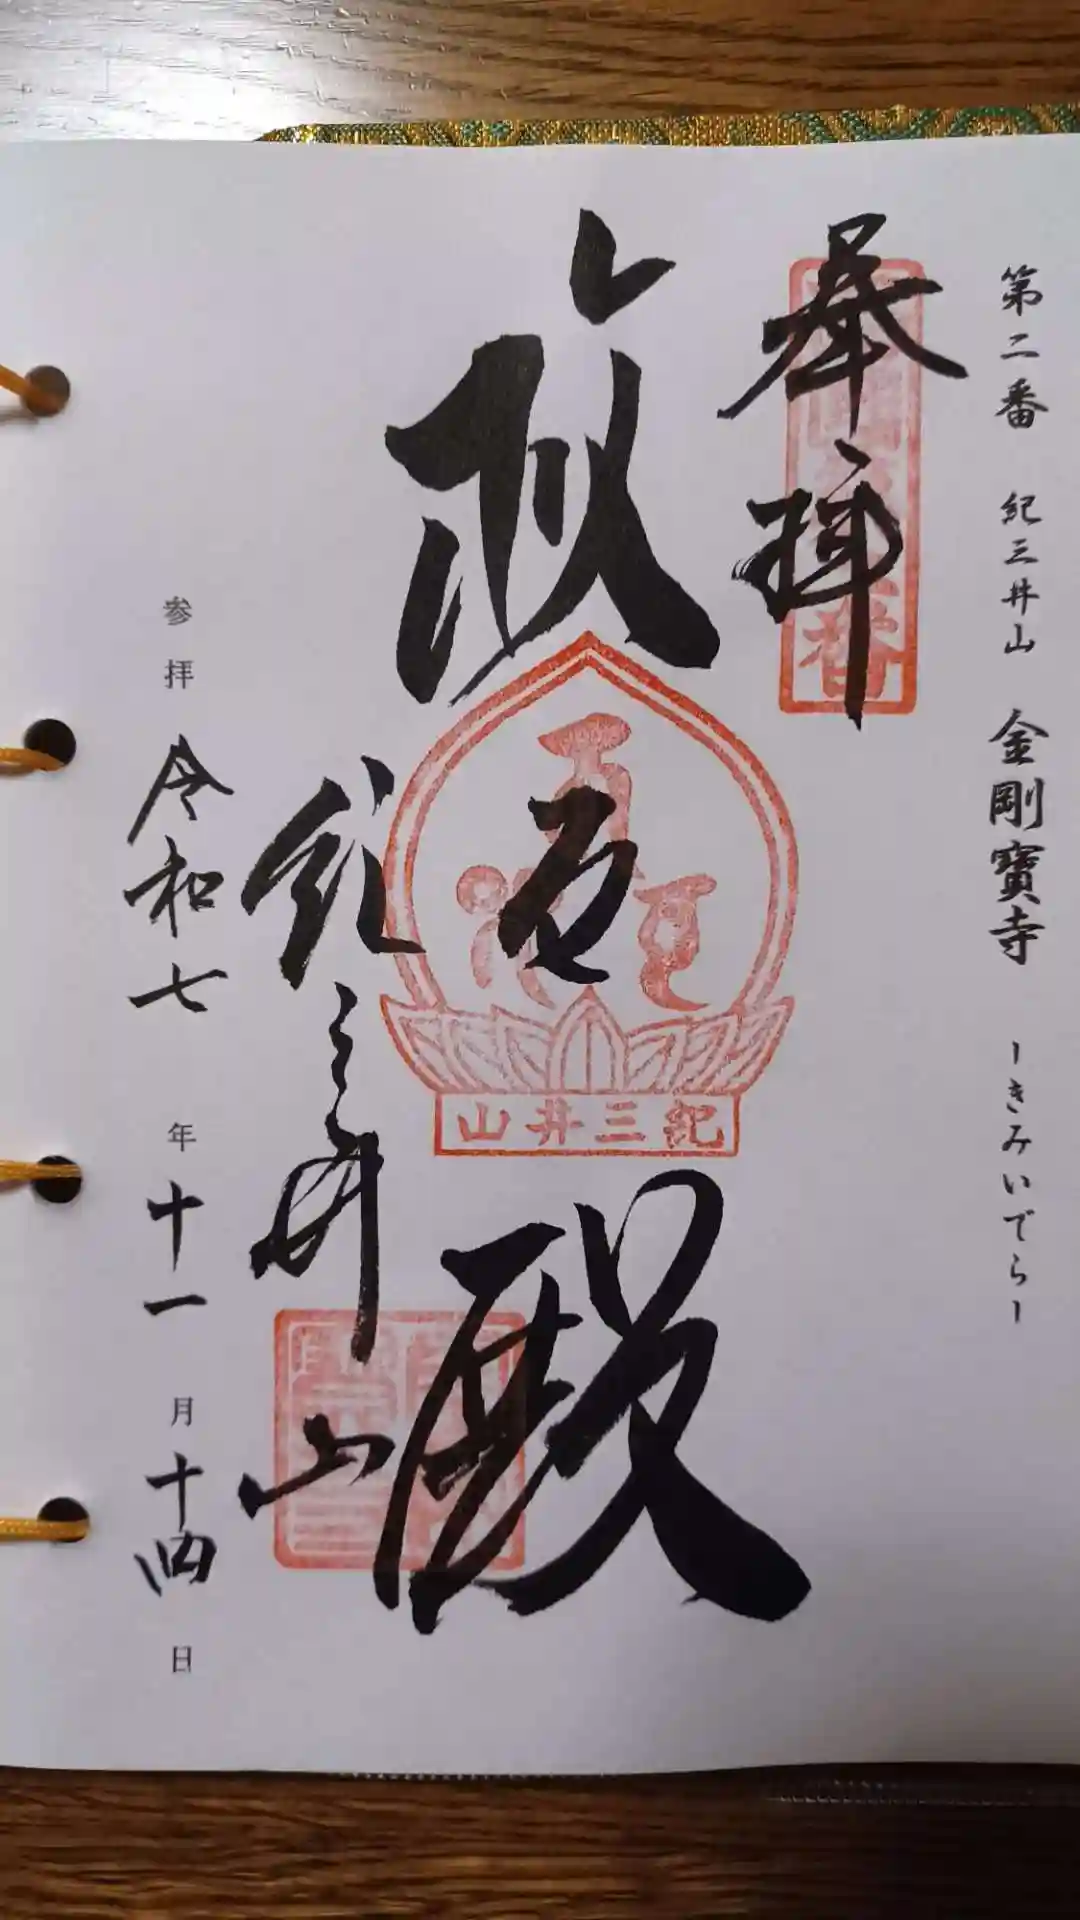 第二番 紀三井山 金剛寶寺 ーきみいでらー
奉拝
救世殿
紀三井山
紀三井山
参拝 令和七年十一月十四日